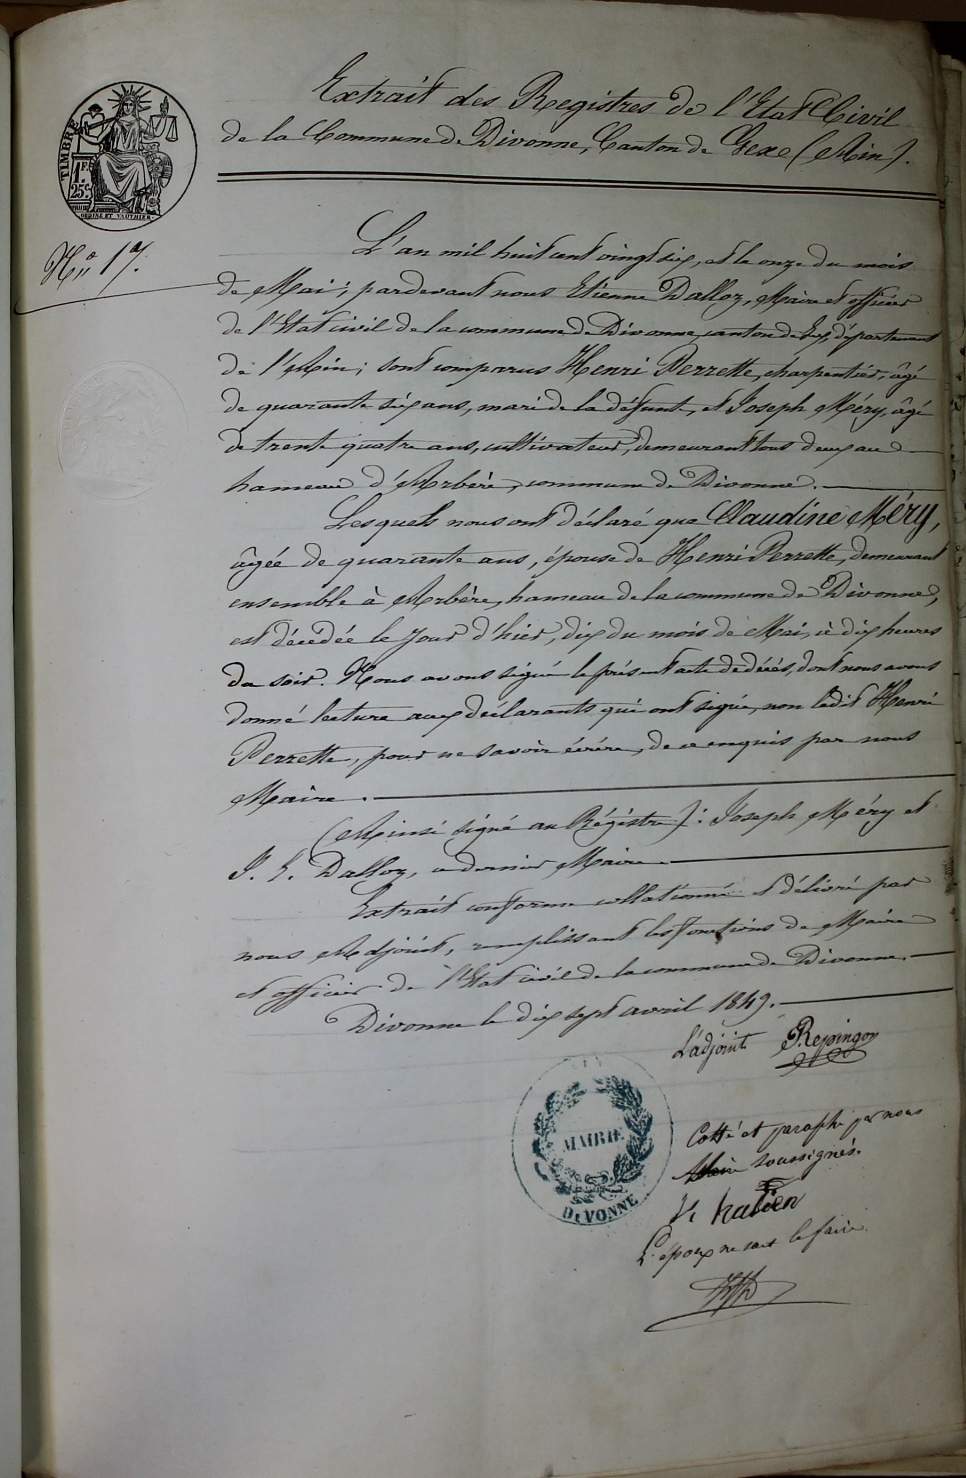 Extrait des Registres de l'Etat Civil
de la Commune de Divonne, Canton de Gex (Ain).
TIMBRE
1 F.
25 c.
N° 17.
L'an mil huit cent vingt six, et le onze du mois
de Mai; pardevant nous Etienne Dalloz, Maire et officier
de l'Etat civil de la commune de Divonne, canton de Gex, département
de l'Ain; sont comparus Henri Perrette, charpentier, âgé
de quarante six ans, mari de la défunte, et Joseph Méry, âgé
de trente quatre ans, cultivateur, demeurant tous deux au
hameau d'Arbère, commune de Divonne.
Lesquels nous ont déclaré que Claudine Méry,
âgée de quarante ans, épouse de Henri Perrette, demeurant
ensemble à Arbère, hameau de la commune de Divonne,
est décédée le jour d'hier, dix du mois de Mai, à dix heures
du soir. Nous avons signé le présent acte de décès, dont nous avons
donné lecture aux déclarants qui ont signé, non ledit Henri
Perrette, pour ne savoir écrire, de ce enquis par nous
Maire.
(Ainsi signé au Régistre): Joseph Méry et
J. E. Dalloz, ce dernier Maire.
Extrait conforme collationné et délivré par
nous Adjoint, remplissant les fonctions de Maire
et officier de l'Etat civil de la commune de Divonne.
Divonne le dix sept avril 1849.
L'adjoint Repingon
MAIRIE
DIVONNE
Cotté et paraphé par nous
soussignés.
L'époux ne sait le faire